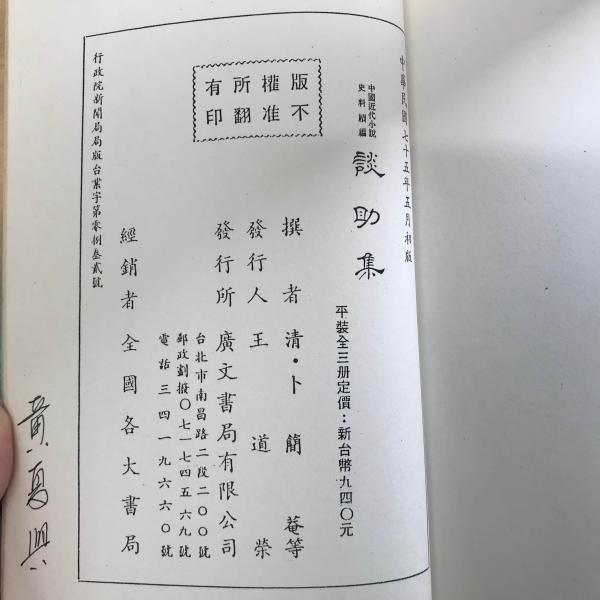 中華民國七十五年五月初版
中國近代小說
史料續編
談助集
平裝全三册定價：新台幣九四〇元
版權所有
不准翻印
撰者清·卜簡菴等
發行人王道榮
發行所廣文書局有限公司
台北市南昌路二段二〇〇號
郵政劃撥〇七一七四五六九號
電話三四一九六六〇號
經銷者全國各大書局
行政院新聞局局版台業字第零捌叁貳號